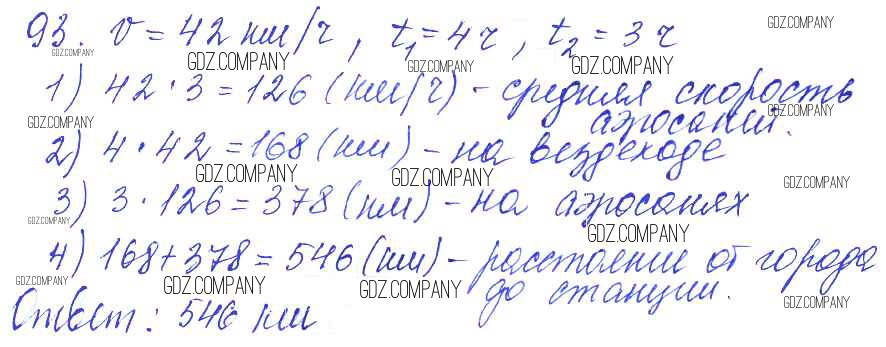 93. v = 42 км/ч, t₁ = 4 ч, t₂ = 3 ч
GDZ.COMPANY
GDZ.COMPANY GDZ.COMPANY GDZ.COMPANY GDZ.COMPANY
1) 42 · 3 = 126 (км/ч) - средняя скорость
аэросаней.
GDZ.COMPANY GDZ.COMPANY
2) 4 · 42 = 168 (км) - на вездеходе
GDZ.COMPANY GDZ.COMPANY GDZ.COMPANY
3) 3 · 126 = 378 (км) - на аэросанях
GDZ.COMPANY GDZ.COMPANY
4) 168 + 378 = 546 (км) - расстояние от города
до станции.
GDZ.COMPANY GDZ.COMPANY GDZ.COMPANY GDZ.COMPANY
Ответ: 546 км